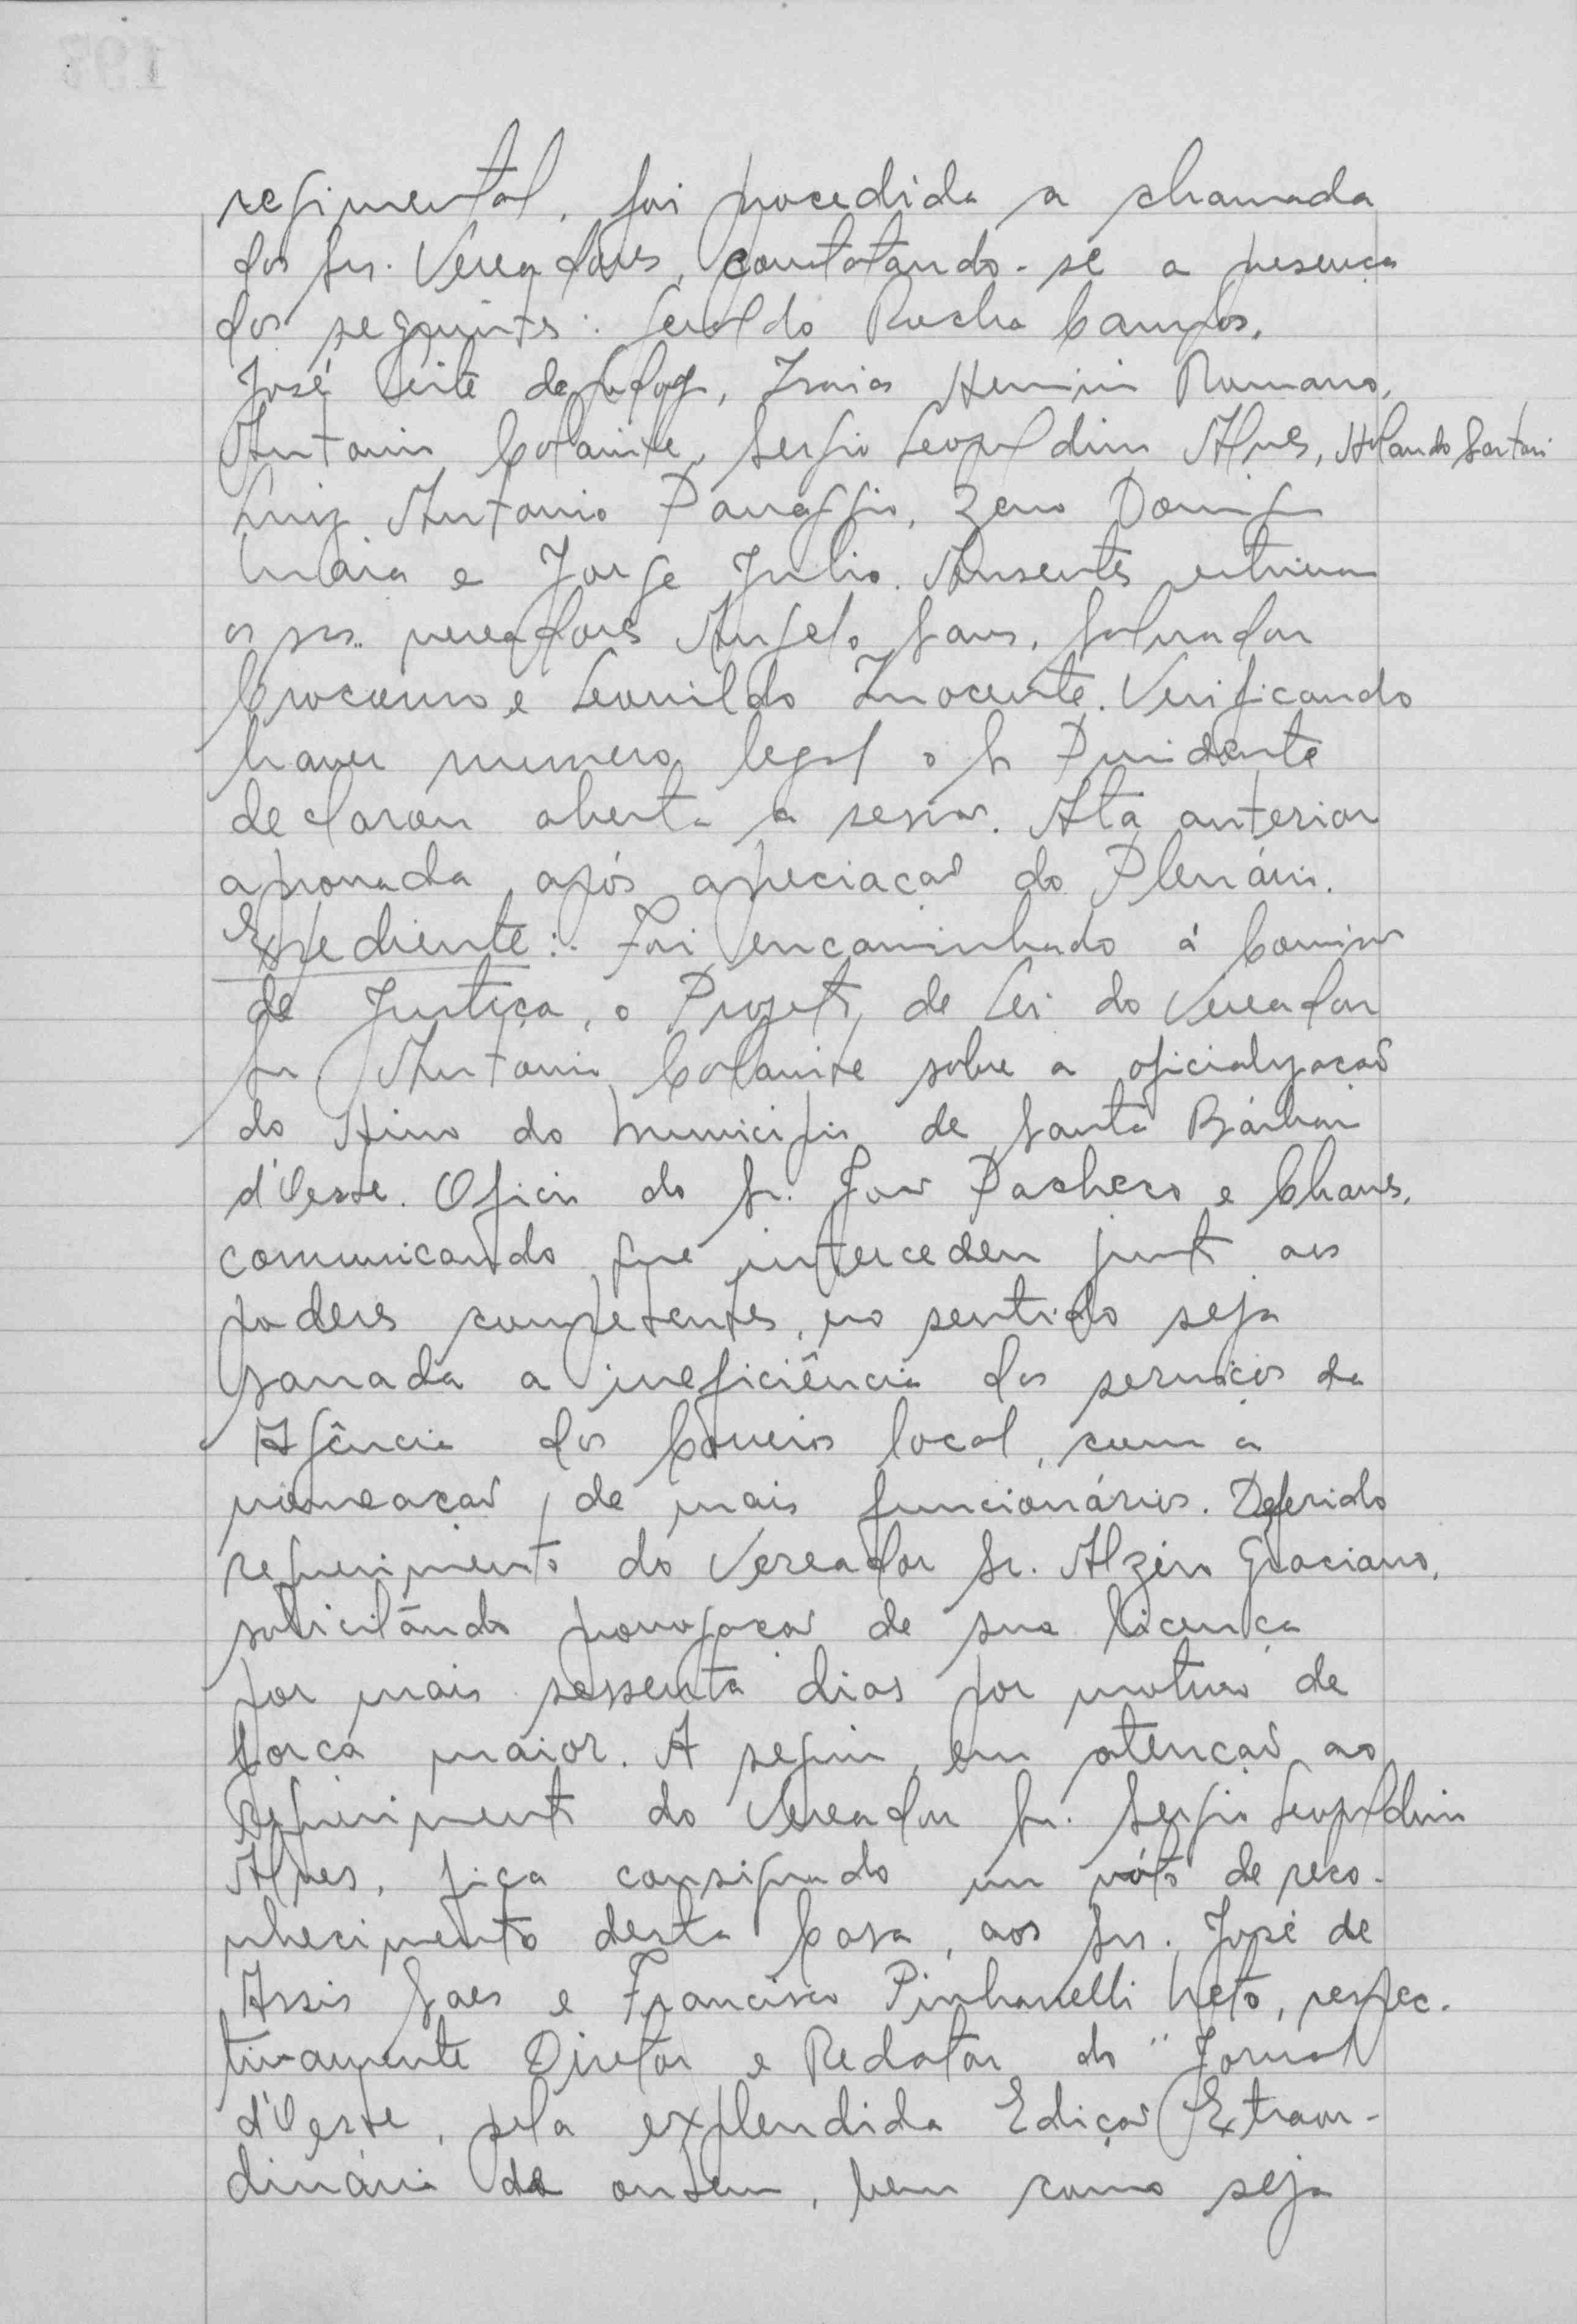 regimental, foi procedida a chamada
dos Srs. Vereadores, constatando-se a presença
dos seguintes: Geraldo Rocha Campos,
José Leite de, Isaias Hermini Romano,
Antonio Colamite, Sergio Leopoldino Alves, Holando Sartori
Luiz Antonio Panaggio, Zeno Domingos
Maia e Jorge Julio. Ausentes estiveram
os srs. vereadores Angelo Sans, Salvador
e Leonildo Inocente. Verificando
haver numero legal o Sr Presidente
declarou aberta a sessão. Ata anterior
aprovada após apreciação do Plenário.
Expediente: Foi encaminhado á Comissão
de Justiça, o Projeto de Lei do Vereador
Sr Antonio Colamite sobre a oficialização
do Hino do Municipio de Santa Bárbara
d'Oeste. Oficio do Sr. João Pacheco e Chaves,
comunicando que intercedeu junto aos
poderes competentes, no sentido seja
sanada a ineficiência dos serviços da
Agência dos Correios local, com a
nomeação de mais funcionários. Deferido
requerimento do Vereador Sr. Alziro Graciano,
solicitando prorrogação de sua licença
por mais sessenta dias por motivo de
força maior. A seguir, em atenção ao
requerimento do Vereador Sr. Sergio Leopoldino
Alves, fica consignado um vóto de reco-
nhecimento desta Casa, aos Srs. José de
Assis Saes e Francisco Pinhanelli Neto, respec-
tivamente Diretor e Redator do "Jornal
d'Oeste, pela explendida Edição Extraor-
dinária de ontem, bem como seja